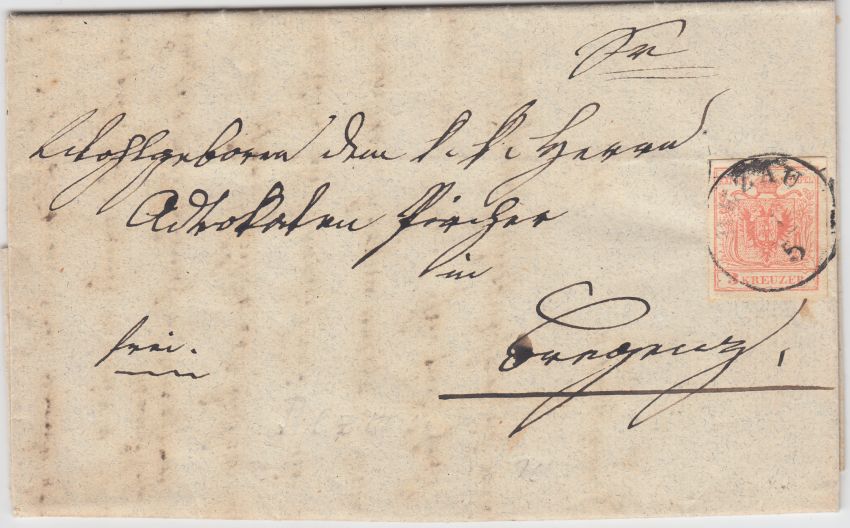 Sr
Wohlgeboren dem k. k. Herrn
Advokaten Pircher
in
Bregenz,
frei.
ZAU
5
3 KREUZER